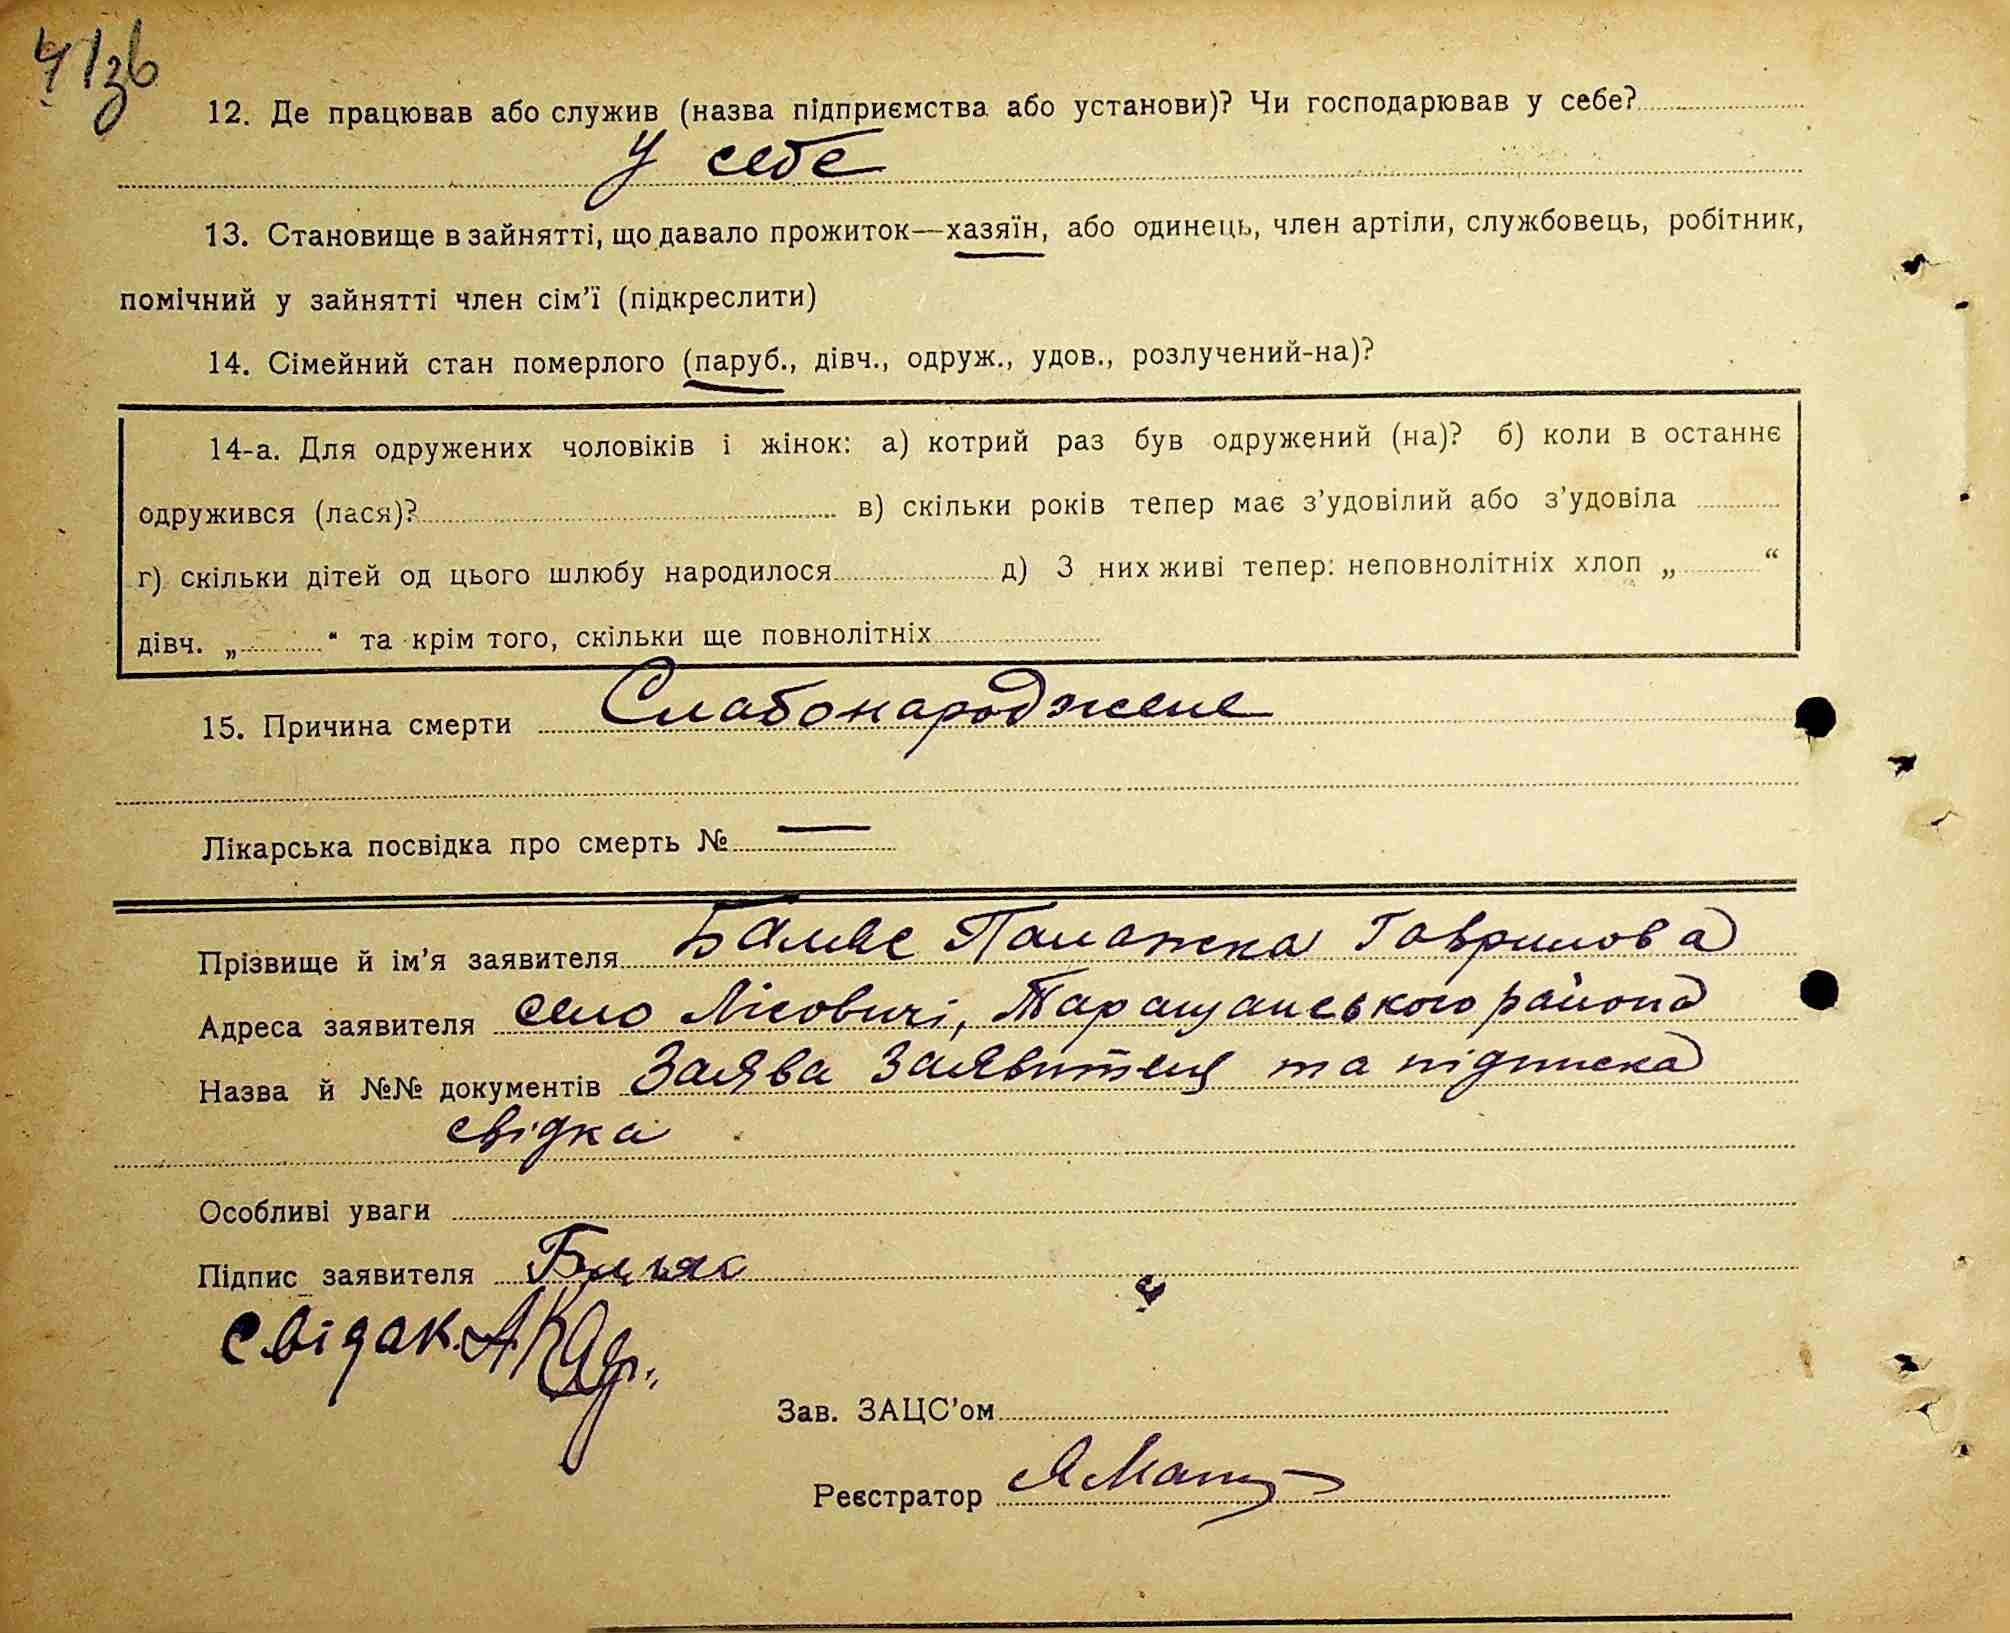 41зв
12. Де працював або служив (назва підприємства або установи)? Чи господарював у себе?
У себе
13. Становище в зайнятті, що давало прожиток—хазяїн, або одинець, член артіли, службовець, робітник,
помічний у зайнятті член сім’ї (підкреслити)
14. Сімейний стан померлого (паруб., дівч., одруж., удов., розлучений-на)?
14-а. Для одружених чоловіків і жінок: а) котрий раз був одружений (на)? б) коли в останнє
одружився (лася)? в) скільки років тепер має з’удовілий або з’удовіла
г) скільки дітей од цього шлюбу народилося д) З них живі тепер: неповнолітніх хлоп „ “
дівч. „ “ та крім того, скільки ще повнолітніх
15. Причина смерти Слабонароджене
Лікарська посвідка про смерть № —
Прізвище й ім’я заявителя Палажка Гаврилова
Адреса заявителя село Лісовичі, Таращанського району
Назва й №№ документів Заява Заявителя та підписка
свідка
Особливі уваги
Підпис заявителя
свідак
Зав. ЗАЦС’ом
Реєстратор